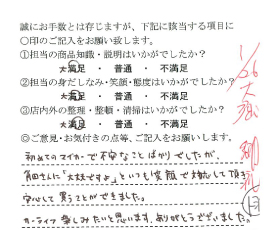 誠にお手数とは存じますが、下記に該当する項目に
○印のご記入をお願い致します。
①担当の商品知識・説明はいかがでしたか?
★満足 ・ 普通 ・ 不満足
②担当の身だしなみ・笑顔・態度はいかがでしたか?
★満足 ・ 普通 ・ 不満足
③店内外の整理・整頓・清掃はいかがでしたか?
★満足 ・ 普通 ・ 不満足
◎ご意見・お気付きの点等、ご記入をお願いします。
初めてのマイカーで不安なことばかりでしたが、
角田さんに「大丈夫ですよ」といつも笑顔で対応して頂き
安心して買うことができました。
カーライフ楽しみたいと思います。ありがとうございました。
1/26